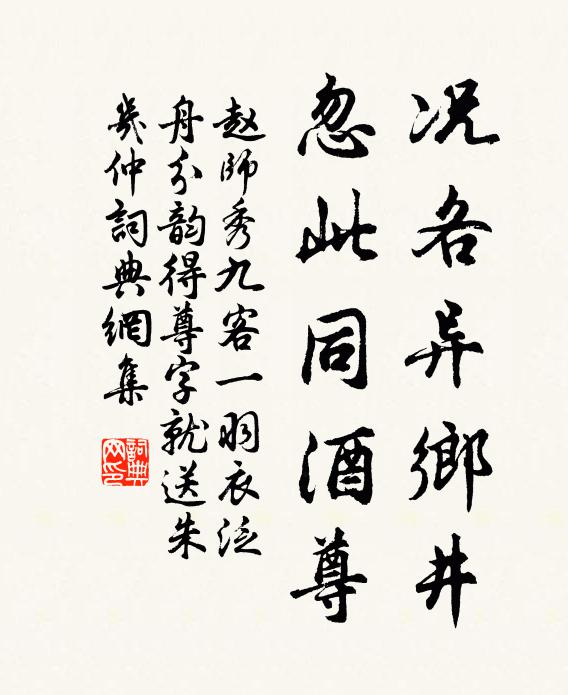 况各异鄉井
忽此同酒尊
赵師秀九客一羽衣泛
舟分韵得尊字就送朱
几仲詞典網集
詞典網印